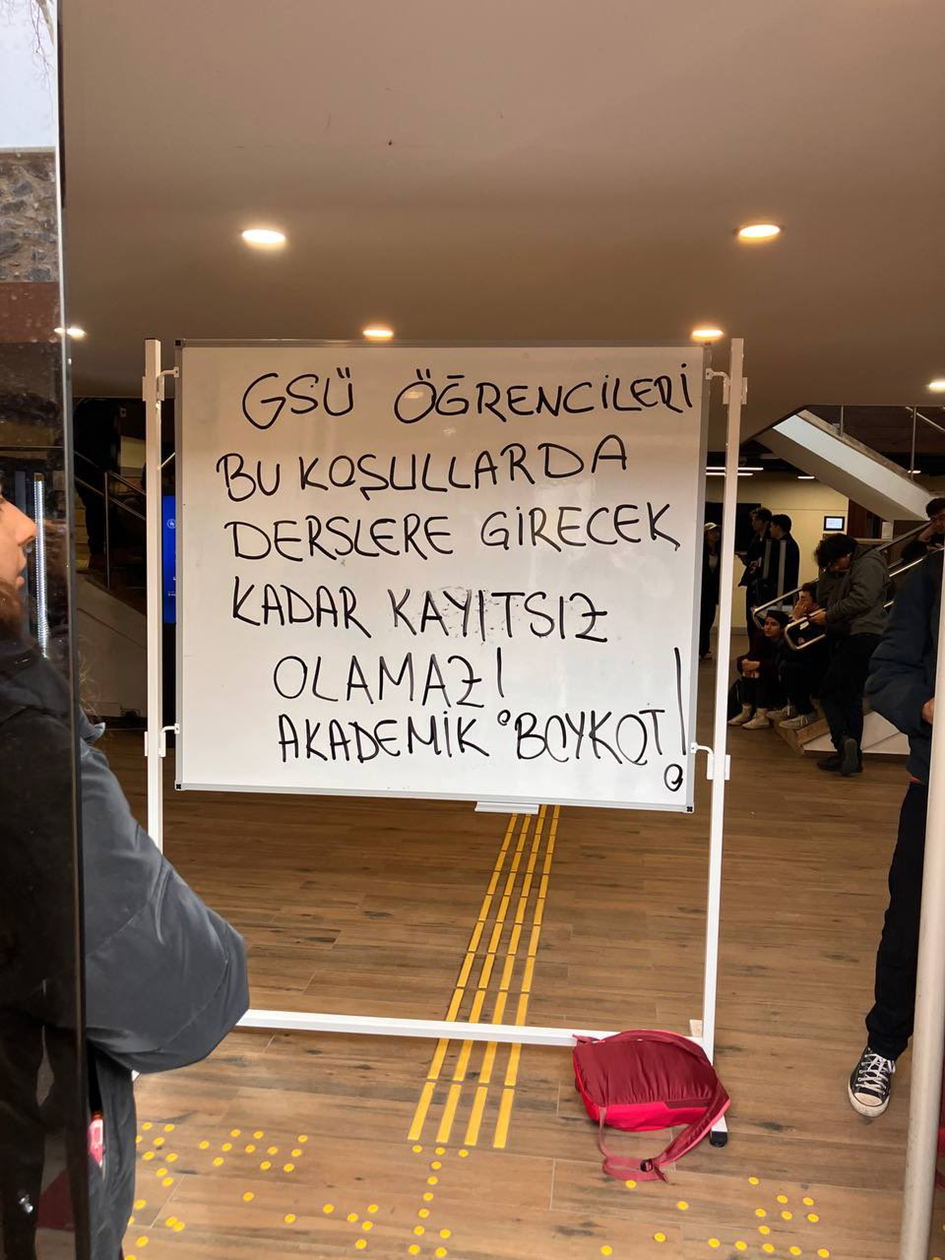 GSÜ ÖĞRENCİLERİ
BU KOŞULLARDA
DERSLERE GİRECEK
KADAR KAYITSIZ
OLAMAZ!
AKADEMİK BOYKOT!